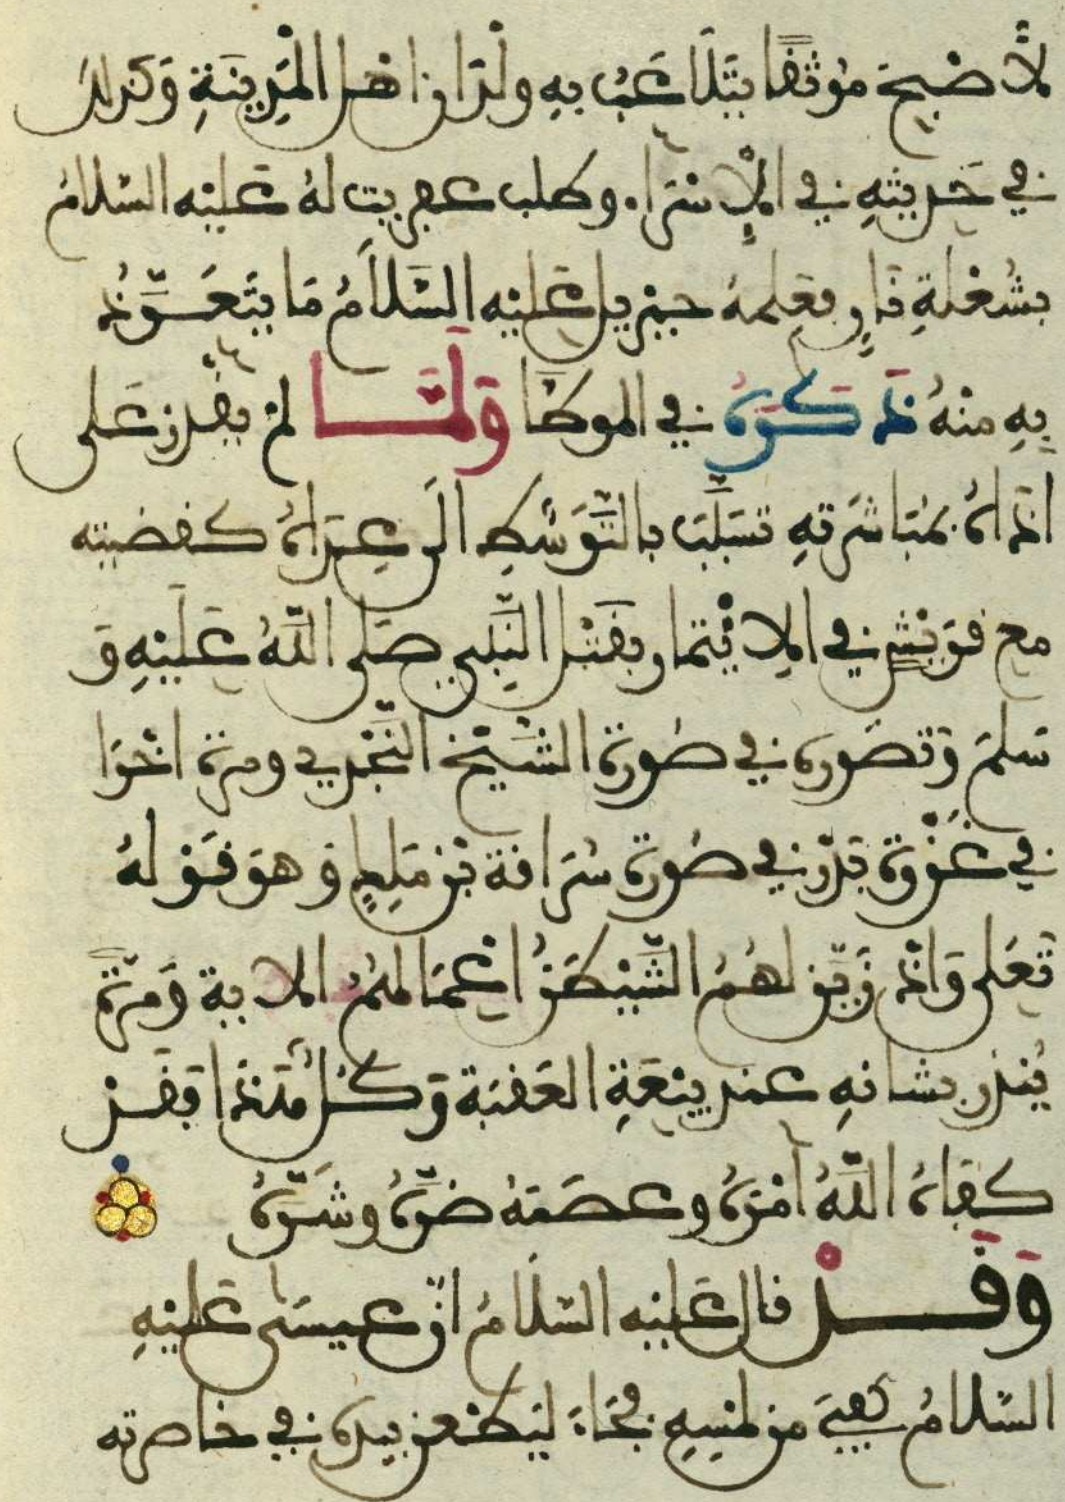 لَأَصْبَحَ مُوثَقًا يَتَلَاعَبُ بِهِ وِلْدَانُ اهْلِ الْمَدِينَةِ وَكَذَلِكَ
فِي حَدِيثِهِ فِي الْإِسْرَاءِ وطلب عفريت لَهُ عَلَيْهِ السَّلَامُ
بشُعْلَةِ نَارٍ فعلمهُ جبْرِيل عَلَيْهِ السَّلَامُ مَا يَتَعَوَّذُ
بِهِ منْهُ ذَكَرَهُ فِي الموطَّا وَلَمَّا لمْ يَقْدِرْ عَلَى
اذَاهُ بمُبَاشَرَتِهِ تَسَبَّبَ بِالتَّوَسُّطِ الَى عِدَاهُ كقضيته
مع قرَيْشٍ فِي الِايْتِمَارِ بِقَتْلِ النَّبِيِ صَلَى اللَّهُ عَلَيْهِ وَ
سَلمَ وَتَصَوُّرِهِ فِي صُورَةِ الشَّيْخِ النَّجْدِي ومرة اخْرَا
فِي غَزْوَةِ بَدْرٍ فِي صُورَةِ سُرَاقَةَ بْنِ مَلِكٍ وَ هوَ قَوْلهُ
تَعَلَى وَاذْ زَيَّنَ لَهُمُ الشَّيْطَنُ اعْمَالَهُمُ الاية وَمَرَّةً
يُنْذِرُ بشَانِهِ عنْدَ بيْعَةِ العَقَبَةِ وَكُلُّ هَذَا فَقَدْ
كفَاهُ اللَّهُ أَمْرَهُ وعصَمَهُ ضَرَّهُ وشَرَّهُ
وَقَدْ قال عَلَيْهِ السَّلَامُ انَّ عِيسَى عَلَيْهِ
السَّلَامُ كُفِيَ من لمْسِهِ فجَاءَ ليَطْعَنَ بيدِهِ فِي خاصرته